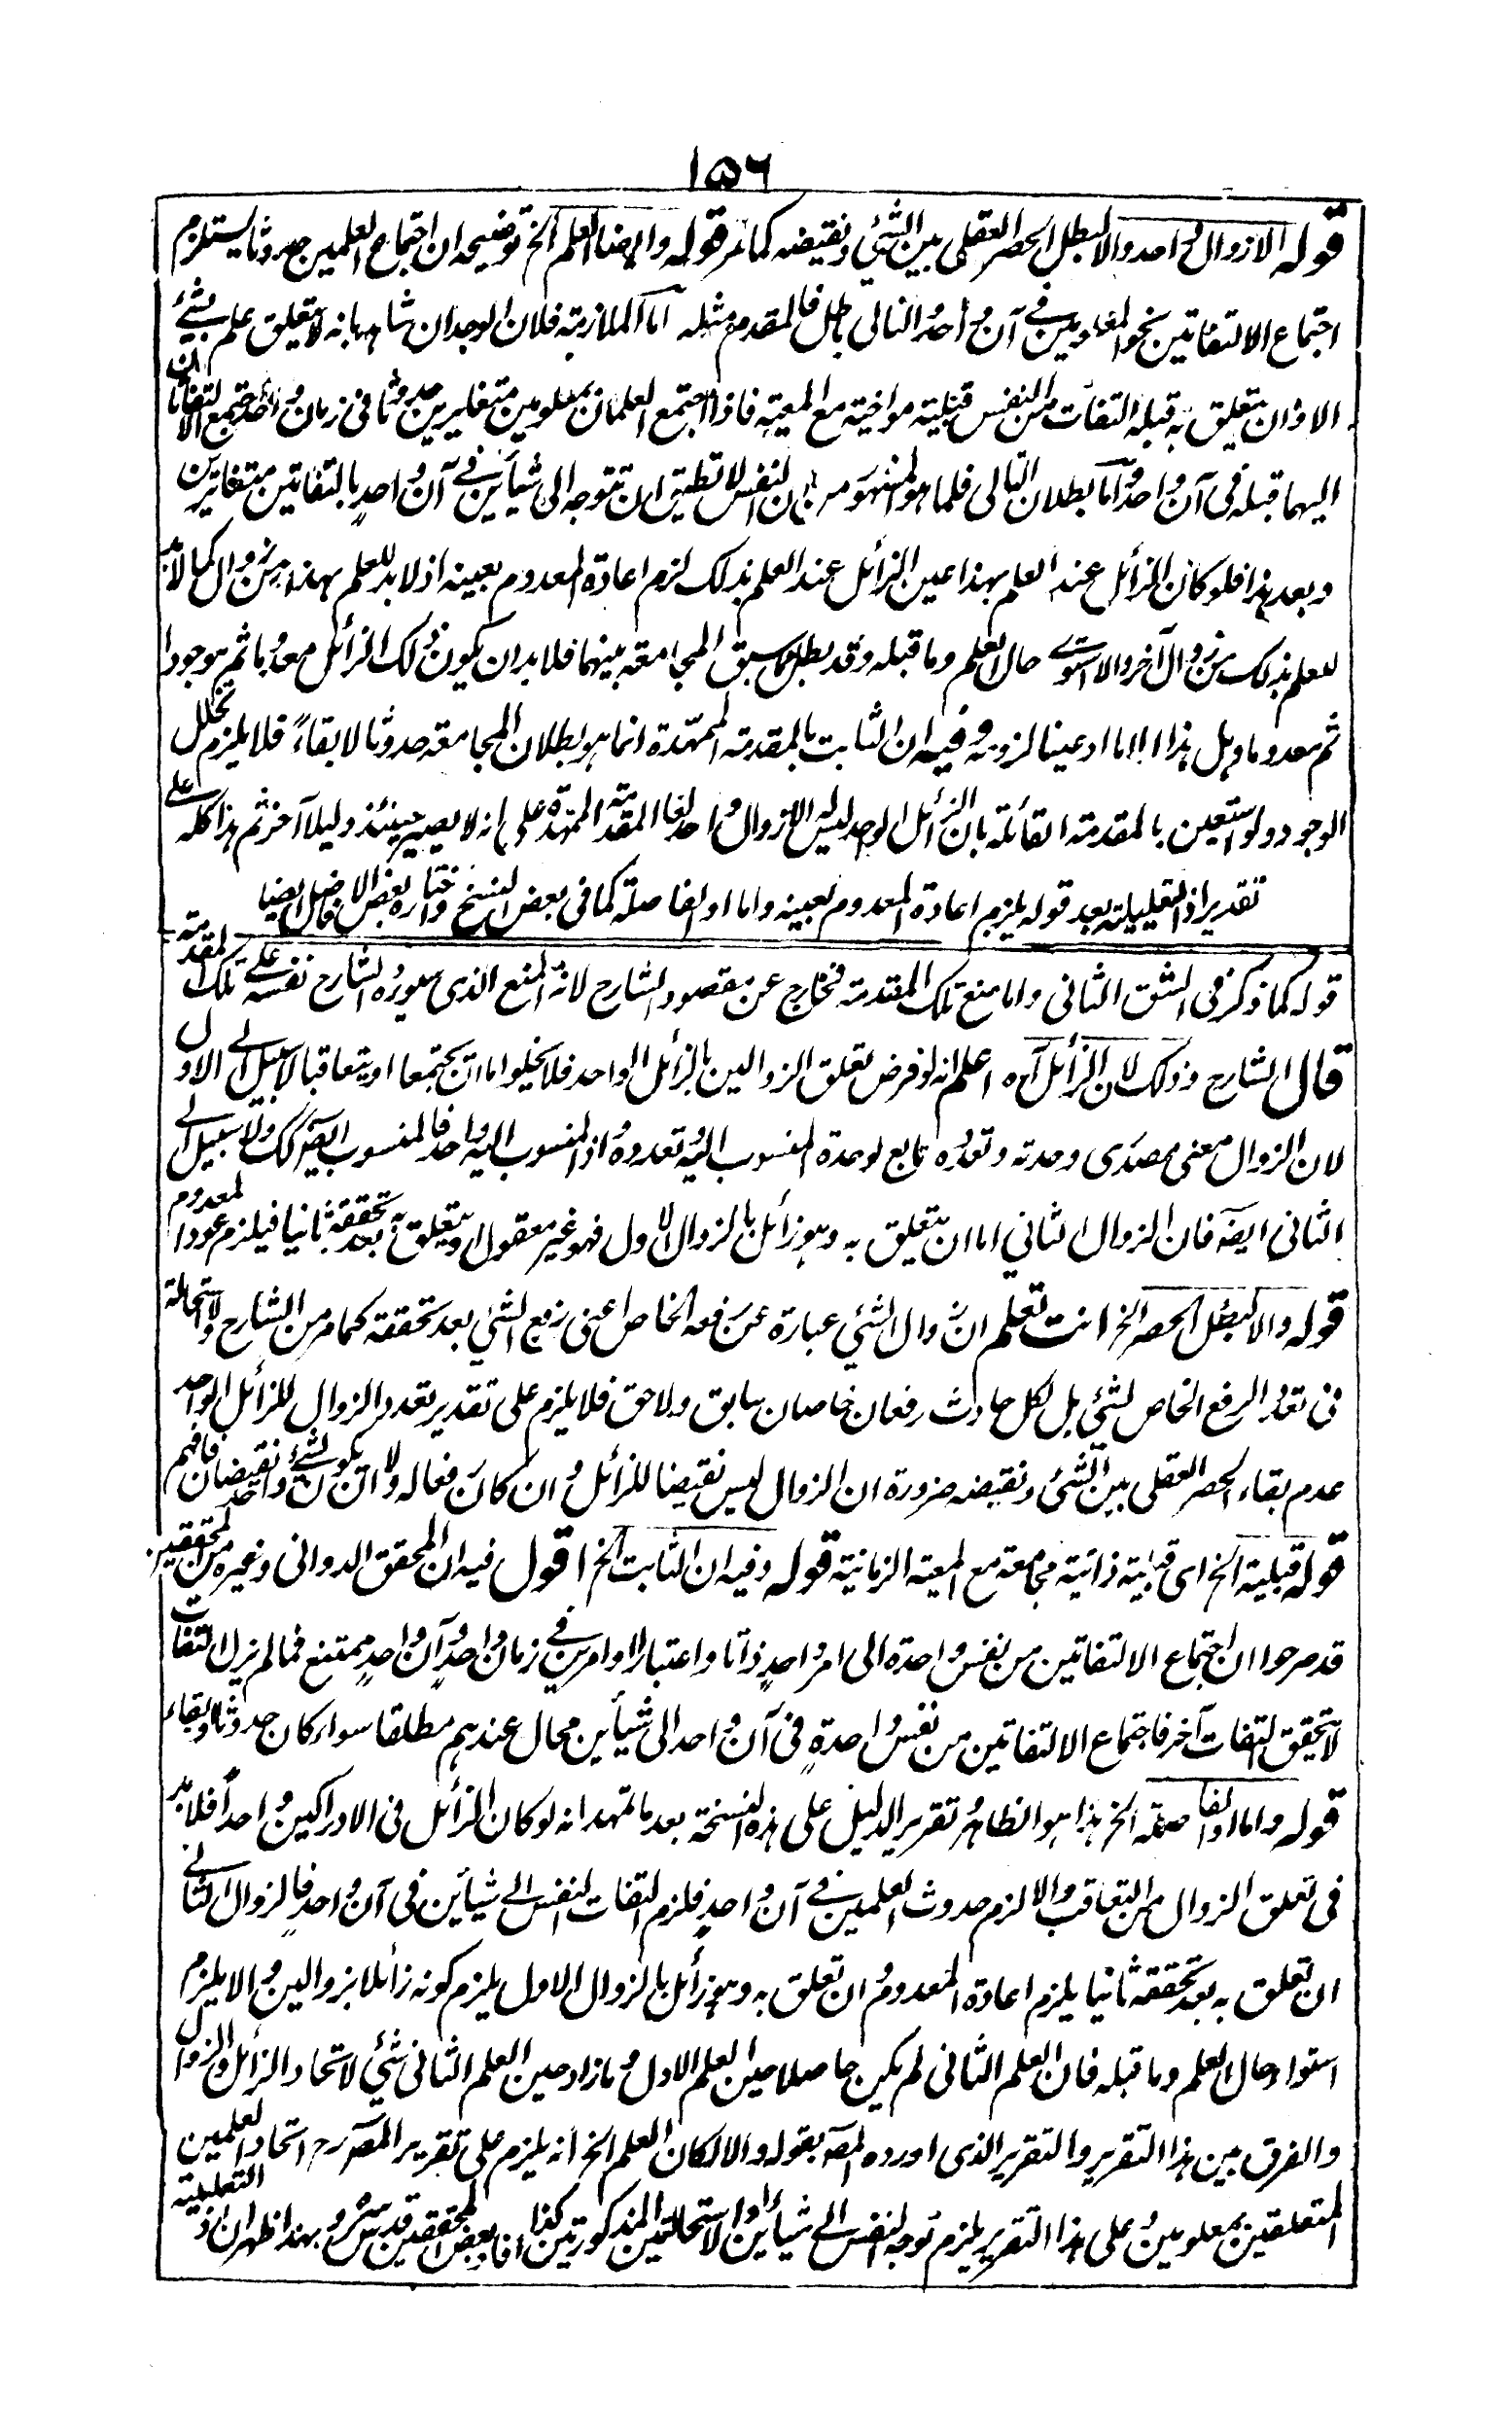 ١٥٦
قوله الا زوال واحد والا لبطل الحصر العقلى بين الشئ ونقيضه كما مر قوله وايضا العلم الخ توضيحه ان اجتماع العلمين حدوثا يستلزم
اجتماع الالتفاتين نحو المعلومين فى آن واحد والتالى باطل فالمقدم مثله اما الملازمة فلان الوجدان شاهد بانه لا يتعلق علم بشئ
الا وان يتعلق به قبله التفات من النفس قبلية مواخية مع المعية فاذا اجتمع العلمان بمعلومين متغايرين حدوثا فى زمان واحد اجتمع الالتفاتان
اليهما قبله فى آن واحد واما بطلان التالى فلما هو المشهور من ان النفس لا تطيق ان تتوجه الى شيأين فى آن واحد بالتفاتين متغايرين
وبعد هذا فلو كان الزائل عند العلم بهذا عين الزائل عند العلم بذلك لزم اعادة المعدوم بعينه اذ لا بد للعلم بهذا من زوال كما لا بد
للعلم بذلك من زوال آخر والا استوى حال العلم وما قبله وقد بطل بما سبق المجامعة بينهما فلا بد ان يكون ذلك الزائل معدوما ثم موجودا
ثم معدوما وهل هذا الا ما ادعينا لزومه وفيه ان الثابت بالمقدمة الممهدة انما هو بطلان المجامعة حدوثا لا بقاءً فلا يلزم تخلل
الوجود ولو استعين بالمقدمة القائلة بان الزائل الواحد ليس له الا زوال واحد لغا المقدمة الممهدة على انه لا يصير حينئذ دليلا آخر ثم هذا كله على
تقدير اذ التعليلية بعد قوله يلزم اعادة المعدوم بعينه واما او الفاصلة كما فى بعض النسخ واختاره بعض الافاضل ايضا
قوله كما ذكر فى الشق الثانى واما منع تلك المقدمة فخارج عن مقصود الشارح لانه المنع الذى سيورده الشارح نفسه على تلك المقدمة
قال الشارح وذلك لان الزائل آه اعلم انه لو فرض تعلق الزوالين بالزائل الواحد فلا يخلو اما ان يجتمعا او يتعاقبا لا سبيل الى الاول
لان الزوال معنى مصدرى وحدته وتعدده تابع لوحدة المنسوب اليه وتعدده واذ المنسوب اليه واحد فالمنسوب ايضا كك ولا سبيل الى
الثانى ايضه فان الزوال الثانى اما ان يتعلق به وهو زائل بالزوال الاول فهو غير معقول او يتعلق به بعد تحققه ثانيا فيلزم عود المعدوم
قوله والا لبطل الحصر الخ انت تعلم ان زوال الشئ عبارة عن رفعه الخاص اعنى رفع الشئ بعد تحققه كما مر من الشارح ولا استحالة
فى تعدد الرفع الخاص لشئ بل لكل حادث رفعان خاصان سابق ولاحق فلا يلزم على تقدير تعدد الزوال للزائل الواحد
عدم بقاء الحصر العقلى بين الشئ ونقيضه ضرورة ان الزوال ليس نقيضا للزائل وان كان رفعا له ولا ان يكون لشئ واحد نقيضان فافهم
قوله قبلية الخ اى قبلية ذاتية مجامعة مع المعية الزمانية قوله وفيه ان الثابت الخ اقول فيه ان المحقق الدوانى وغيره من المحققين
قد صرحوا ان اجتماع الالتفاتين من نفس واحدة الى امر واحد ذاتا واعتبارا او امرين فى زمان واحد وآن واحد ممتنع فما لم يزل التفات
لا يتحقق التفات آخر فاجتماع الالتفاتين من نفس واحدةٍ فى آن واحد الى شيأين محال عندهم مطلقا سواء كان حدوثا او بقاء
قوله واما او الفاصلة الخ هذا هو الظاهر تقرير الدليل على هذه النسخة بعد ما تمهد انه لو كان الزائل فى الادراكين واحداً فلا بد
فى تعلق الزوال من التعاقب والا لزم حدوث العلمين فى آن واحدٍ فلزم التفات النفس الى شيأين فى آن واحد فالزوال الثانى
ان تعلق به بعد تحققه ثانيا يلزم اعادة المعدوم وان تعلق به وهو زائل بالزوال الاول يلزم كونه زائلا بزوالين والا يلزم
استواء حال العلم وما قبله فان العلم الثانى لم يكن حاصلا حين العلم الاول وما زاد حين العلم الثانى شئ لاتحاد الزائل والزوال
والفرق بين هذا التقرير والتقرير الذى اورده المصه بقوله والا لكان العلم الخ انه يلزم على تقرير المصه رح اتحاد العلمين
المتعلقين بمعلومين وعلى هذا التقرير يلزم توجه النفس الى شيأين او الاستحالتين المذكورتين كذا افاد بعض المحققين قدس سره وبهذا ظهر ان اذ التعليلية